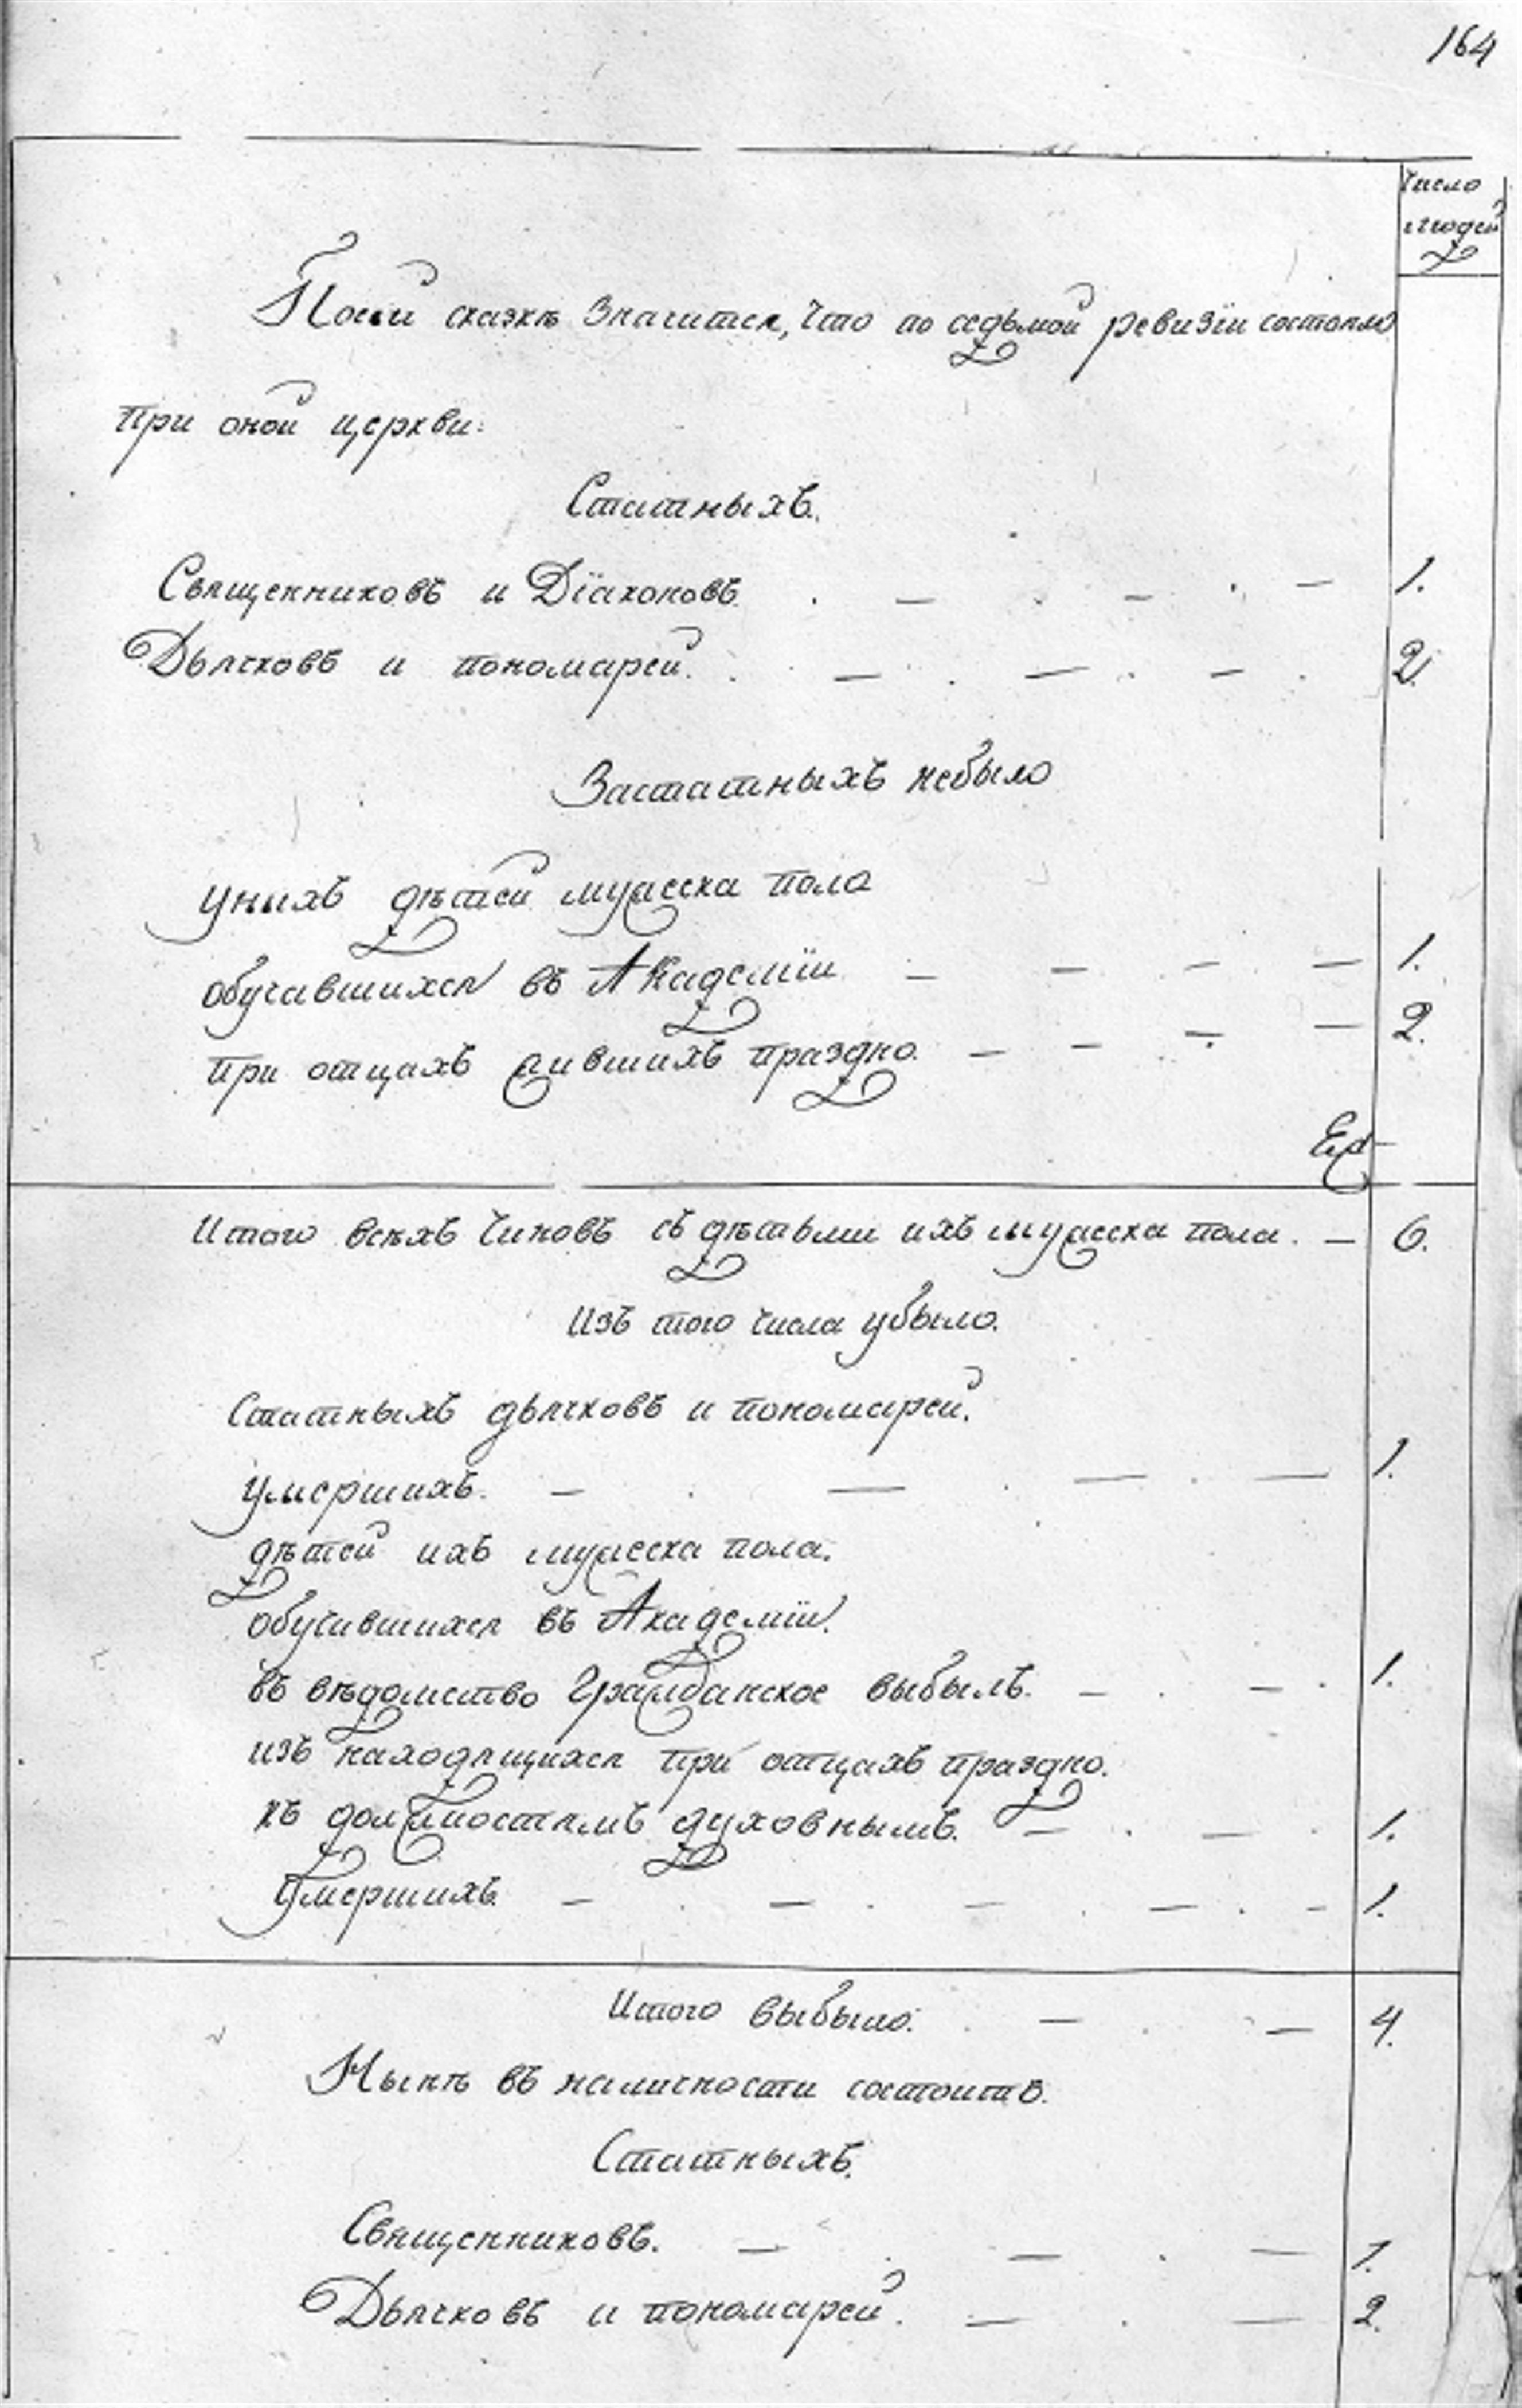 164
Число
людей
Посей сказкѣ Значится, Что по седьмой ревизіи состояло
при оной церкви:
Статныхъ.
Священниковъ и Діаконовъ. — — — 1.
Дьячковъ и пономарей. — — — 2.
Застатныхъ небыло
Унихъ дѣтей мужеска пола
обучавшихся въ Академіи — — — — 1.
при отцахъ жившихъ праздно. — — — — 2.
Итого всѣхъ Чиновъ съ дѣтьми ихъ мужеска пола. — 6.
Изъ того Числа убыло.
Статныхъ дьячковъ и пономарей.
Умершихъ. — — — — 1.
дѣтей ихъ мужеска пола.
обучившихся въ Академіи.
въ вѣдомство Гражданское выбылъ. — — 1.
изъ находящихся при отцахъ праздно.
къ должностямъ духовнымъ. — — 1.
Умершихъ. — — — — — 1.
Итого выбыло. — — 4.
Нынѣ въ наличности состоитъ.
Статныхъ.
Священниковъ. — — — 1.
Дьячковъ и пономарей. — — 2.